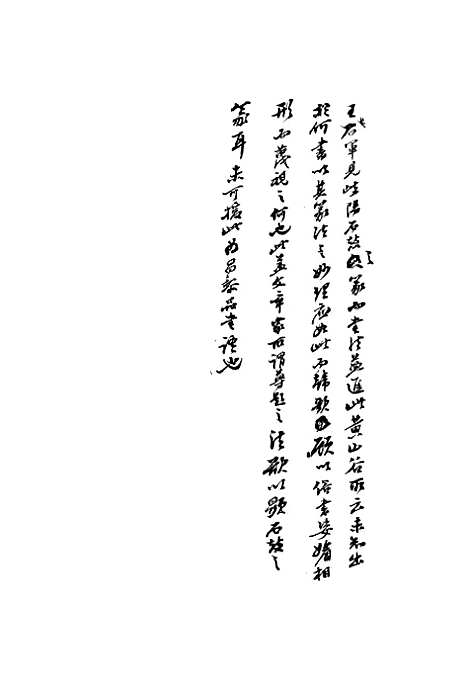 王右軍見岐陽石鼓之篆而書法益進此黃山谷所云未知出
於何書以其篆法之妙理應如此而韓歌顧以俗書姿媚相
形而蔑視之何也此蓋文章家所謂尊題之法歌以顯石鼓之
篆耳未可據此為昌黎品書語也